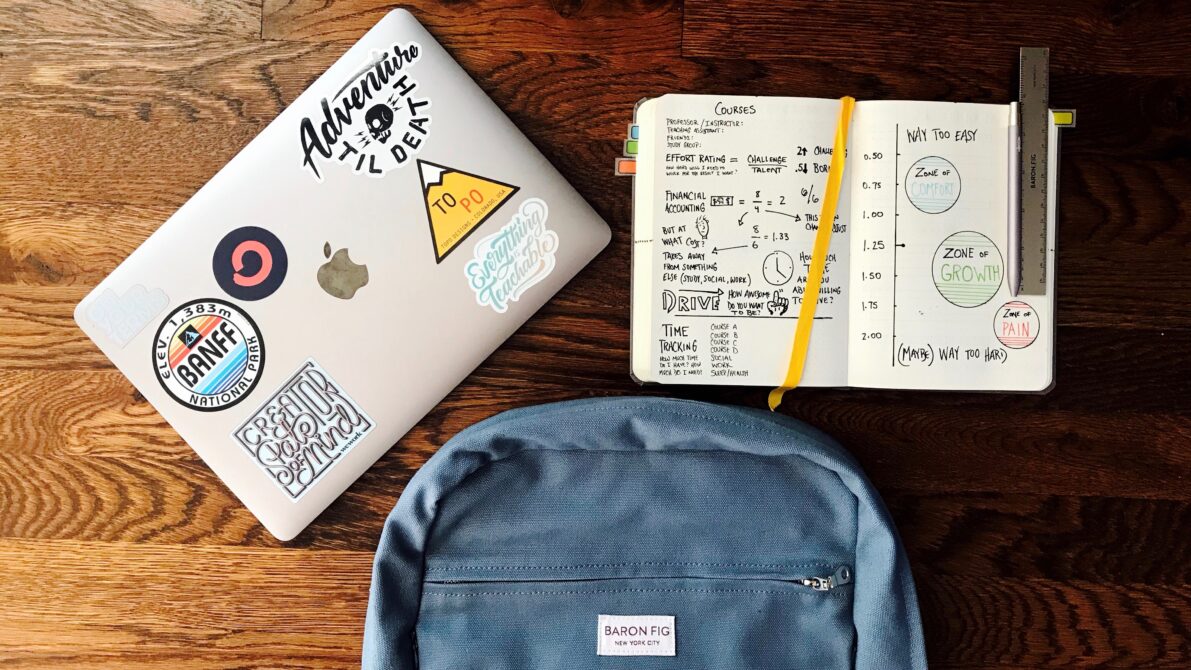 Adventure
'TIL DEATH
TO PO
TOPO DESIGNS • COLORADO, USA
Everything
is
Teachable
ELEV. 1,383m
BANFF
NATIONAL PARK
CREATOR
State
of mind
wework
COURSES
PROFESSOR / INSTRUCTOR:
TEACHING ASSISTANT:
FRIENDS:
STUDY GROUP:
EFFORT RATING = CHALLENGE
TALENT
HOW HARD WILL I NEED TO
WORK FOR THE RESULT I WANT?
2↑
.5↓
FINANCIAL
ACCOUNTING = 8
4 = 2
6/6
BUT AT
WHAT COST?
8
6 = 1.33
TAKES AWAY
FROM SOMETHING
ELSE (STUDY, SOCIAL, WORK)
DRIVE HOW AWESOME
DO YOU WANT
TO BE?
TIME
TRACKING
HOW MUCH TIME
DO I HAVE? HOW
MUCH DO I NEED?
COURSE A
COURSE B
COURSE C
COURSE D
SOCIAL
WORK
SLEEP/HEALTH
WAY TOO EASY
0.50
0.75
1.00
1.25
1.50
1.75
2.00
ZONE OF
COMFORT
ZONE OF
GROWTH
ZONE OF
PAIN
(MAYBE) WAY TOO HARD
BARON FIG
BARON FIG
NEW YORK CITY